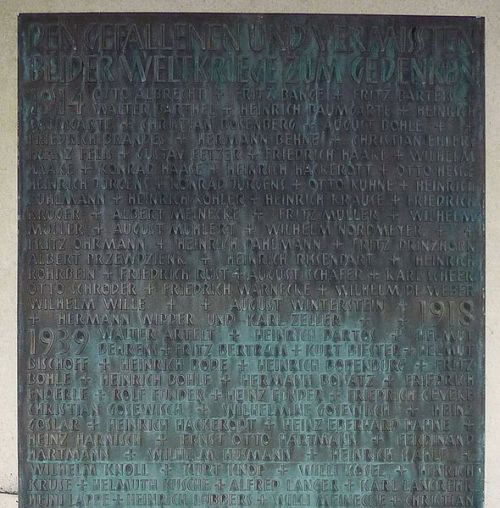 DEN GEFALLENEN UND VERMISSTEN
BEIDER WELTKRIEGE ZUM GEDENKEN
1914 OTTO ALBRECHT + FRITZ BANGE + FRITZ BARTELS
+ WALTER BARTHEL + HEINRICH BAUMGARTE + HEINRICH
BAUMGARTE + CHRISTIAN BOKENBERG + AUGUST BOHLE + +
FRIEDRICH BRANDES + HERMANN BEHNE + CHRISTIAN EILERS
FRANZ FELIS + GUSTAV FETZER + FRIEDRICH HAAKE + WILHELM
HAAKE + KONRAD HAAKE + HEINRICH HACKEROTT + OTTO HESKE
HEINRICH JÜRGENS + KONRAD JÜRGENS + OTTO KÜHNE + HEINRICH
KUHLMANN + HEINRICH KÖHLER + HEINRICH KRAUCE + FRIEDRICH
KRÜGER + ALBERT MEINECKE + FRITZ MÜLLER + WILHELM
MÜLLER + AUGUST MÜHLERT + WILHELM NORDMEYER + +
FRITZ OHRMANN + HEINRICH PAHLMANN + FRITZ PRINZHORN
ALBERT PRZEWDZIENK + HEINRICH RISCENDART + HEINRICH
ROHRBEIN + FRIEDRICH RUST + AUGUST SCHÄFER + KARL SCHEER
OTTO SCHRÖDER + FRIEDRICH WARNECKE + WILHELM DEWEBER
WILHELM WILLE + + AUGUST WINTERSTEIN + 1918
+ HERMANN WIPPER UND KARL ZELLER
1939 WALTER ARTELT + HEINRICH BARTOS + HELMUT
BEHRENS + FRITZ BERTRAM + KURT BIESTER + HELMUT
BISCHOFF + HEINRICH BODE + HEINRICH BODENBURG + FRITZ
BOHLE + HEINRICH BOHLE + HERMANN DONATZ + FRIEDRICH
ENDERLE + ROLF FUNDER + HEINZ FUNDER + FRIEDRICH GEVEKE
CHRISTIAN GOSEWISCH + WILHELMINE GOSEWISCH + HEINZ
GOSLAR + HEINRICH HACKEROTT + HEINZ EBERHARD HAHNE +
HEINZ HARNISCH + ERNST OTTO HARTMANN + FERDINAND
HARTMANN + WILHELM HUSMANN + HEINRICH KAHLE +
WILHELM KNOLL + KURT KNOP + WILLI KOSEL + HINRICH
KRUSE + HELMUTH KUSCHE + ALFRED LANGER + KARL LANGREHR
HEINZ LAPPE + HEINRICH LÜBBERS + WILLI MEINECKE + CHRISTIAN